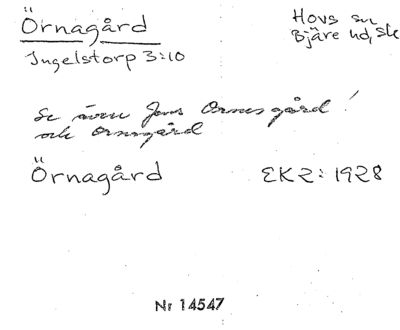 Örnagård
Hovs sn
Bjäre hd, Sk
Ingelstorp 3:10
Se även Jens Ornesgård!
och Ornagård
Örnagård EK2: 1928
Nr 14547